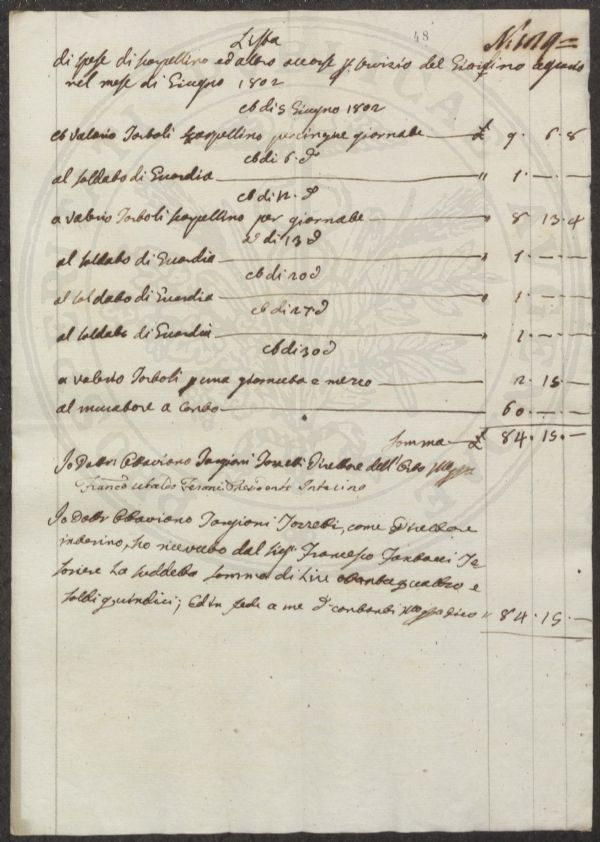 48
N: 119=
Lista
di spese di scarpellino ed altro occorse p. servizio del Giardino agrario
nel mese di Giugno 1802
A dì 5 Giugno 1802
A Valerio Torboli scarpellino per cinque giornate £ 9. 6. 8
A dì 6. d°
al soldato di Guardia " 1. — —
A dì 12. d°
a Valerio Torboli scarpellino per giornate " 8 13. 4
A dì 13 d°
al soldato di Guardia " 1. — —
A dì 20 d°
al soldato di Guardia " 1. — —
A dì 27 d°
al soldato di Guardia " 1. — —
A dì 30 d°
a Valerio Torboli p una giornata e mezzo 2. 15. —
al muratore a conto 60. — —
Somma £ 84. 15. —
Io Dottr Ottaviano Targioni Tozzetti Direttore dell'Orto
Franco Ubaldo Feroni Presidente Interino
Io Dottr Ottaviano Targioni Tozzetti, come Direttore
interino, ho ricevuto dal Sigr Francesco Te
soriere la suddetta somma di Lire ottantaquattro e
soldi quindici; Ed in fede a me di contanti dico " 84. 15. —